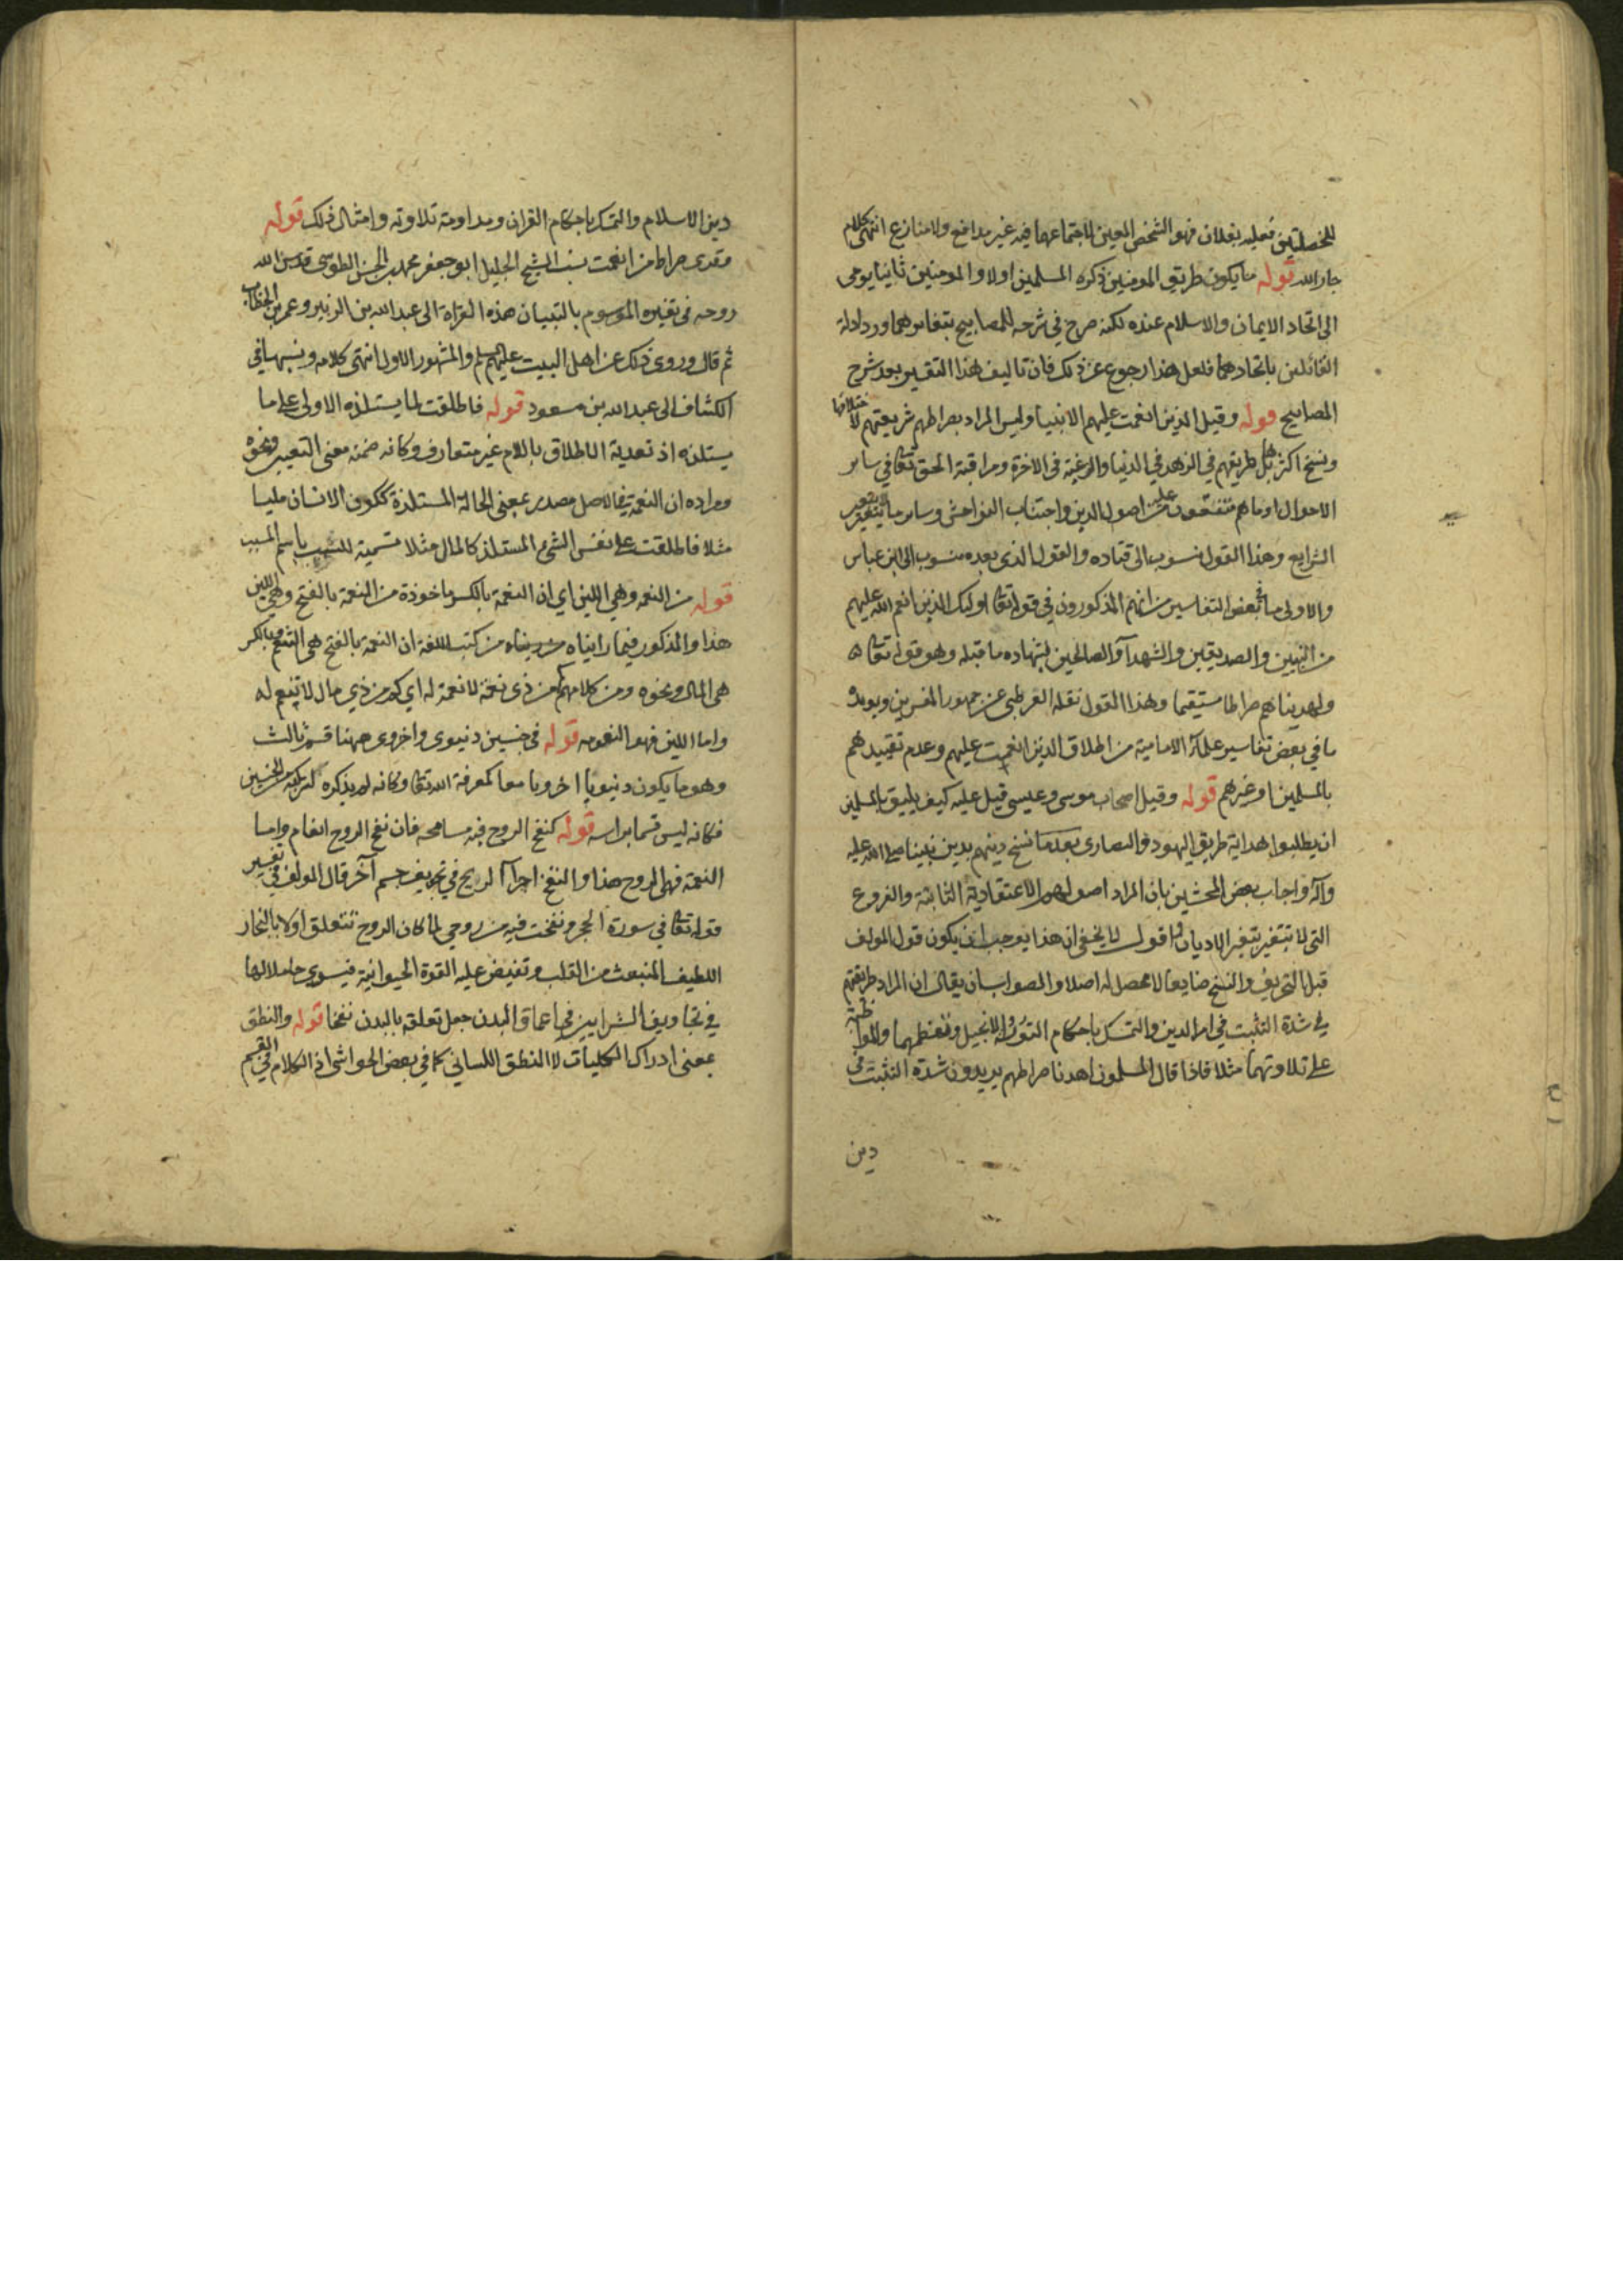 للخصلتين فعليه بفلان فهو الشخص المعين لاجتماعهما فيه غير مدافع ولا منازع انتهى كلام
جار الله قوله ما يكون طريق المومنين ذكره المسلمين اولا والمومنين ثانيا يومى
الى اتحاد الايمان والاسلام عنده لكنه صرح في شرحه للمصابيح بتغايرهما ورد ادلة
القائلين باتحادهما فلعل هذا رجوع عن ذلك فان تاليف هذا التفسير بعد شرح
المصابيح قوله وقيل الذين انعمت عليهم الانبيا وليس المراد بصراطهم شريعتهم لاختلافها
ونسخ اكثرها بل طريقهم في الزهد في الدنيا والرغبة في الاخرة ومراقبة الحق تعالى في ساير
الاحوال او ما هم متفقون عليه من اصول الدين واجتناب الفواحش وساير ما لا يتغير بتغير
الشرايع وهذا القول منسوب الى قتاده والقول الذى بعده منسوب الى ابن عباس
والاولى ما في بعض التفاسير من انهم المذكورون في قوله تعالى اولئك الذين انعم الله عليهم
من النبيين والصديقين والشهدآ والصالحين بشهاده ما قبله وهو قوله تعالى
ولهديناهم صراطا مستقيما وهذا القول نقله القرطبى عن جمهور المفسرين ويويده
ما في بعض تفاسير علمائنا الامامية من اطلاق الذين انعمت عليهم وعدم تقييدهم
بالمسلمين او غيرهم قوله وقيل اصحاب موسى وعيسى قيل عليه كيف يليق بالمسلمين
ان يطلبوا هداية طريق اليهود والنصارى بعدما نسخ دينهم بدين نبينا صلى الله عليه
وآله واجاب بعض المحشين بان المراد اصولهم الاعتقادية الثابتة والفروع
التى لا تتغير بتغير الاديان واقول لا يخفى ان هذا يوجب ان يكون قول المولف
قبل التحريف والنسخ ضايعا لا محصل له اصلا والصواب ان يقال ان المراد طريقتهم
في شدة التثبت في امر الدين والتمسك باحكام التورية والانجيل وتعظيمهما والمواظبة
على تلاوتهما مثلا فاذا قال المسلمون اهدنا صراطهم يريدون شدة التثبت في
دين
دين الاسلام والتمسك باحكام القران ومداومة تلاوته وامثال ذلك قوله
وقرى صراط من انعمت نسب الشيخ الجليل ابو جعفر محمد بن الحسن الطوسى قدس الله
روحه في تفسيره الموسوم بالتبيان هذه القراة الى عبد الله بن الزبير وعمر بن الخطاب
ثم قال وروى ذلك عن اهل البيت عليهم السلم والمشهور الاول انتهى كلامه ونسبها في
الكشاف الى عبد الله بن مسعود قوله فاطلقت لما يستلذه الاولى على ما
يستلذه اذ تعدية الاطلاق باللام غير متعارف وكانه ضمنه معنى التعيير ونحوه
ومراده ان النعمة في الاصل مصدر بمعنى الحالة المستلذة ككون الانسان مليا
مثلا فاطلقت على نفس الشيء المستلذ كالمال مثلا تسمية للسبب باسم المسبب
قوله من النعمه وهي اللين اي ان النعمة بالكسر ماخوذة من النعمة بالفتح وهي اللين
هذا والمذكور فيما رايناه من كتب اللغة ان النعمة بالفتح هي التنعم وبالكسر
هي المال ونحوه ومن كلامهم كم من ذى نعمة لا نعمة له اي كم من ذي مال لا تنعم له
واما اللين فهو النعومه قوله في جنسين دنيوى واخروى ههنا قسم ثالث
وهو ما يكون دنيويا اخرويا معا كمعرفة الله تعالى وكانه لم يذكره لتركبه من الجنسين
فكانه ليس قسما براسه قوله كنفخ الروح فيه مسامحه فان نفخ الروح انعام واما
النعمة فهى الروح هذا والنفخ اجرآ الريح في تجويف جسم آخر قال المولف في تفسير
قوله تعالى في سورة الحجر ونفخت فيه من روحي لما كان الروح تتعلق اولا بالبخار
اللطيف المنبعث من القلب وتفيض عليه القوة الحيوانية فيسرى حاملا لها
في تجاويف الشرايين في اعماق البدن جعل تعلقه بالبدن نفخا قوله والنطق
بمعنى ادراك الكليات لا النطق اللساني كما في بعض الحواشى اذ الكلام في القسم